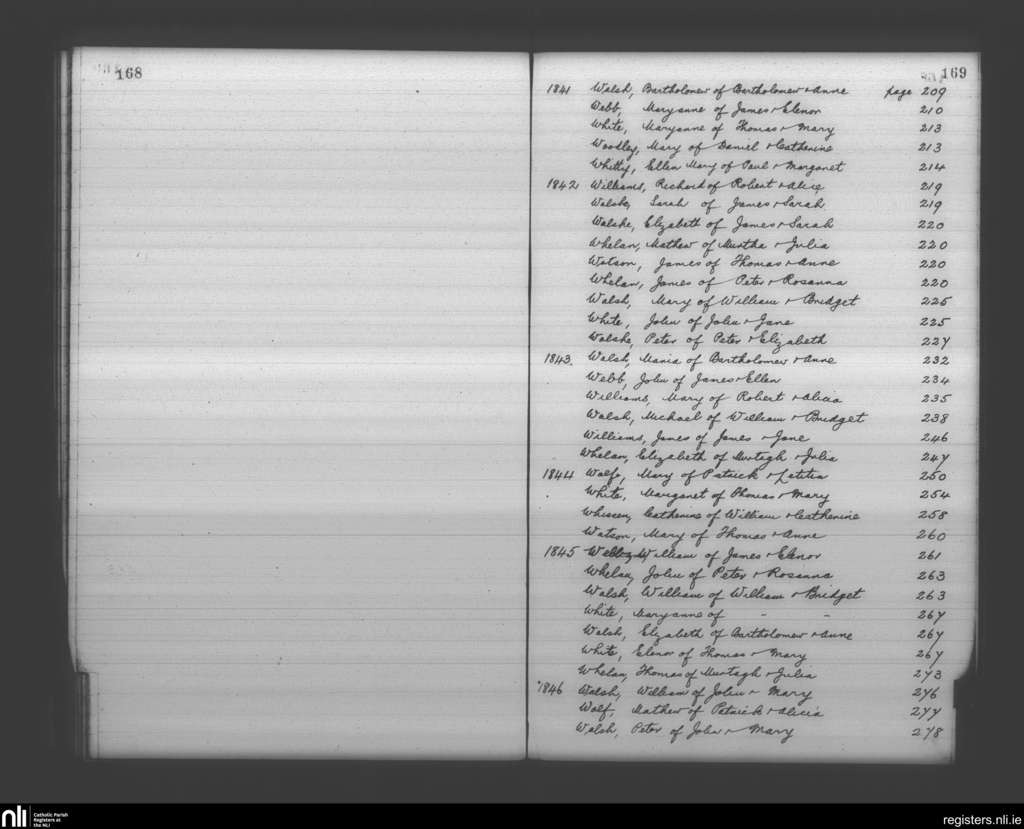 168
169
1841 Walsh, Bartholomew of Bartholomew & Anne page 209
Webb, Maryanne of James & Elenor 210
White, Maryanne of Thomas & Mary 213
Woodley, Mary of Daniel & Catherine 213
Whitty, Ellen Mary of Paul & Margaret 214
1842 Williams, Richard of Robert & Alice 219
Walshe, Sarah of James & Sarah 219
Walshe, Elizabeth of James & Sarah 220
Whelan, Mathew of Murtha & Julia 220
Watson, James of Thomas & Anne 220
Whelan, James of Peter & Rosanna 220
Walsh, Mary of William & Bridget 225
White, John of John & Jane 225
Walshe, Peter of Peter & Elizabeth 227
1843. Walsh, Maria of Bartholomew & Anne 232
Webb, John of James & Ellen 234
Williams, Mary of Robert & Alicia 235
Walsh, Michael of William & Bridget 238
Williams, James of James & Jane 246
Whelan, Elizabeth of Murtagh & Julia 247
1844 Wolfe, Mary of Patrick & Letitia 250
White, Margaret of Thomas & Mary 254
Catherine of William & Catherine 258
Watson, Mary of Thomas & Anne 260
1845 William of James & Elenor 261
Whelan, John of Peter & Rosanna 263
Walsh, William of William & Bridget 263
White, Maryanne of - - 267
Walsh, Elizabeth of Bartholomew & Anne 267
White, Elenor of Thomas & Mary 267
Whelan, Thomas of Murtagh & Julia 273
1846 Walsh, William of John & Mary 276
Wolf, Mathew of Patrick & Alicia 277
Walsh, Peter of John & Mary 278
nli Catholic Parish
Registers at
the NLI
registers.nli.ie